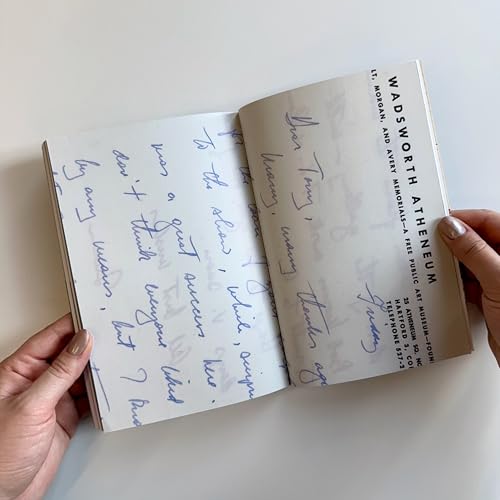 WADSWORTH ATHENEUM
MORGAN, AND AVERY MEMORIALS—A FREE PUBLIC ART MUSEUM—FOUN
25 ATHENEUM SQ. NO
HARTFORD 3, CO
TELEPHONE
Friday
Dear Tony,
Many, many thanks aga
for the loan of
To the show, which,
was a great success here.
don't think everyone liked
by any means, but I